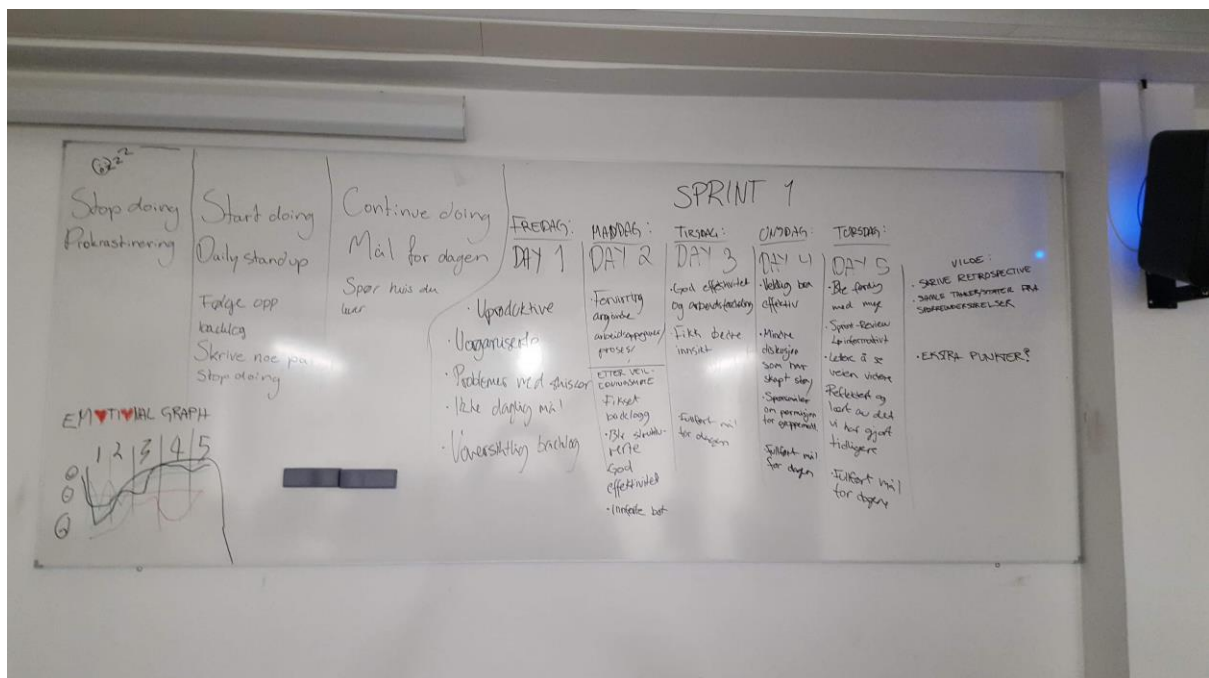 Stop doing
Prokrastinering
Start doing
Daily standup
Følge opp
backlog
Skrive noe på
Stop doing
Continue doing
Mål for dagen
Spør hvis du
lurer
EMOTIONAL GRAPH
1 2 3 4 5
SPRINT 1
FREDAG:
DAY 1
· Uproduktive
· Uorganiserte
· Problemer med
· Ikke daglig mål
· Uoversiktlig backlog
MANDAG:
DAY 2
Forvirring
angående
arbeidsoppgaver/
prosess
ETTER VEIL-
Fikset
backlogg
· Ble struktu-
rerte
God
effektivitet
· Innførte bot
TIRSDAG:
DAY 3
· God effektivitet
og arbeidsfordeling
· Fikk bedre
innsikt
· Fullført mål
for dagen
ONSDAG:
DAY 4
· Veldig bra
effektiv
· Mindre
diskusjon
som har
skapt støy
· Spørsmål
om permisjon
for gruppemedl.
· Fullført mål
for dagen
TORSDAG:
DAY 5
· Ble ferdig
med mye
· Sprint-Review
informativt
· Lettere å se
veien videre
· Reflektert og
lært av det
vi har gjort
tidligere
· Fullført mål
for dagene
VILDE:
· SKRIVE RETROSPECTIVE
· SAMLE TANKER/NOTATER FRA
SPØRREUNDERSØKELSER
· EKSTRA PUNKTER?